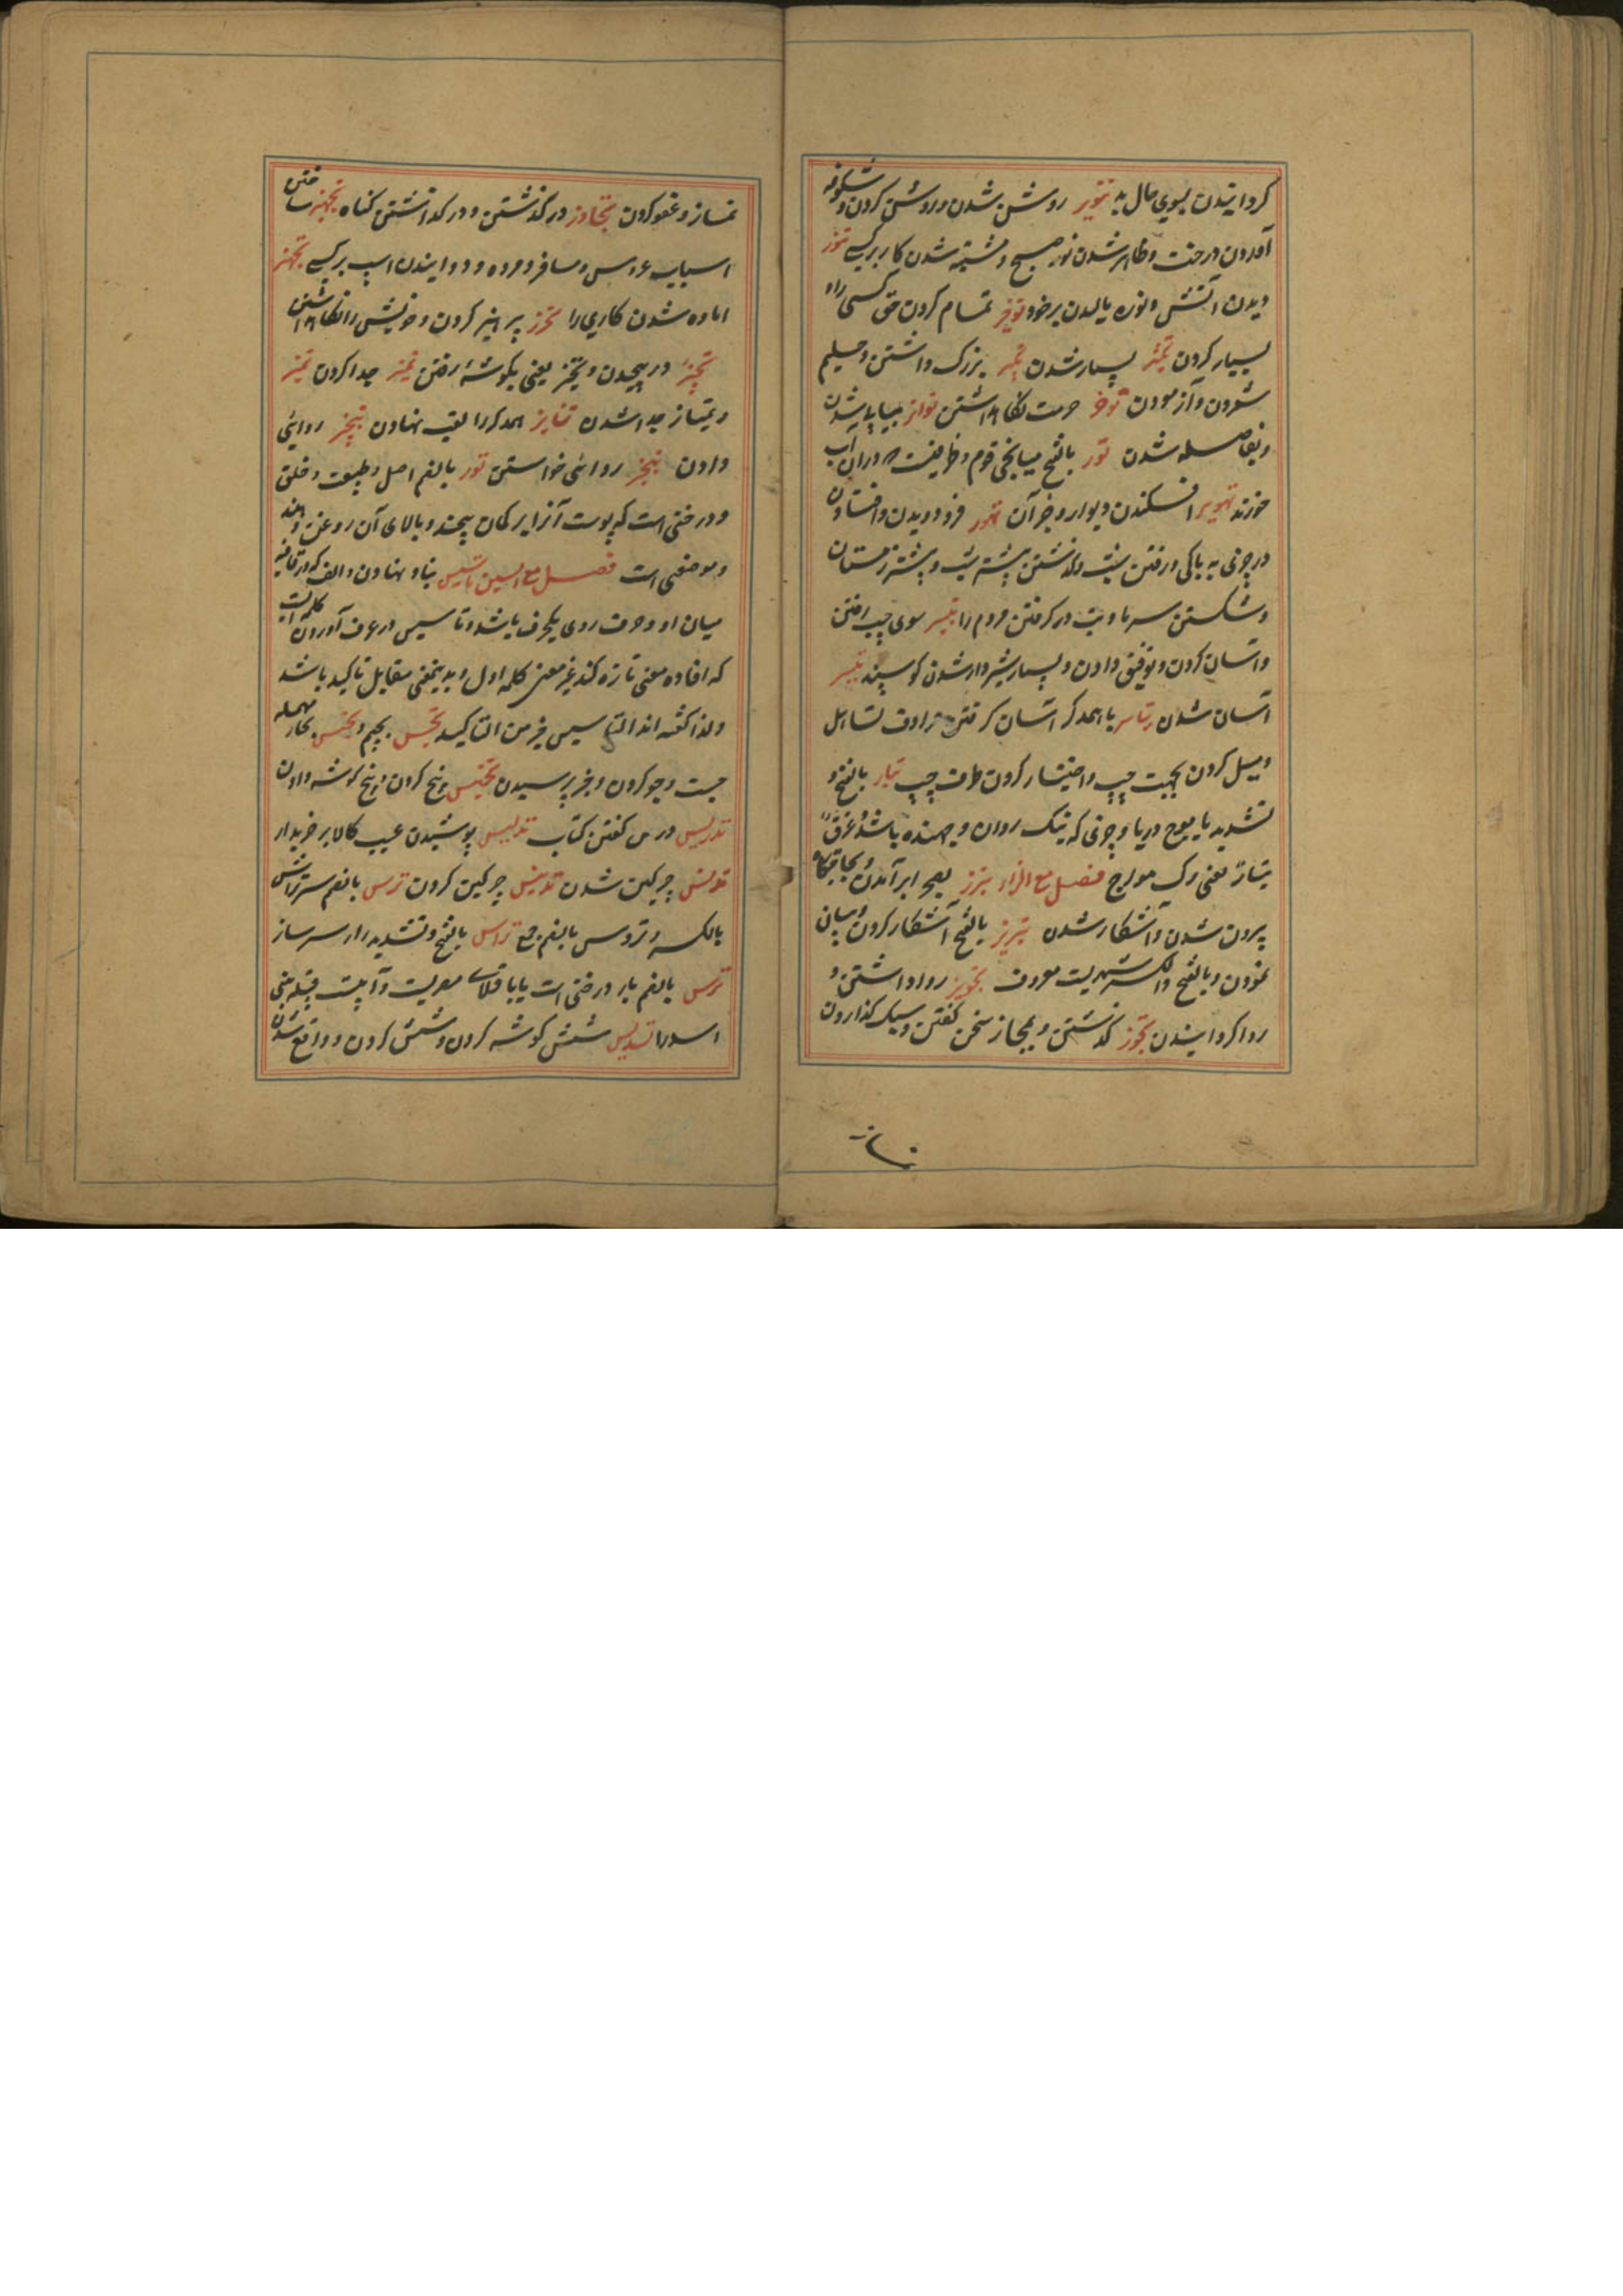 کردانیدن بسوی مال بد تنویر روشن شدن و روشن کردن و شکوفه
آوردن درخت و ظاهر شدن نور صبح و مشتبه شدن کار بر کسی تنور
دیدن آتش و نوره مالیدن بر خود توفیر تمام کردن حق کسی را و
بسیار کردن شدن بزرک داشتن و حلیم
شمردن و آزمودن توقر حرمت نکاهداشتن تواتر پیاپی شدن
و بفاصله شدن تور بالفتح میانجی قوم و ظرفیست که دران آب
خورند تهویر افکندن دیوار و جز آن تهور فرود ویدن و افتادن
در چیزی به بیباکی و رفتن شب و کذشتن بیشتر شب و بیشتر زمستان
و شکستن سرما و شب در کرفتن مردم را تیسیر سوی چپ رفتن
و آسان کردن و توفیق دادن و بسیار شیردار شدن کوسپند تیسر
آسان شدن تیاسر با همدکر آسان کرفتن مرادف تساهل
و میل کردن بجهت چپ و اختیار کردن طرف چپ تیار بالفتح و
تشدید یا موج دریا و چیزی که نیک روان و جهنده باشد و عرق
تیار یعنی رک مواج فصل مع الزاء تبرز بصحرا برآمدن بجا
بیرون شدن و آشکار شدن تبریز بالفتح آشکار کردن و بیان
نمودن و بالفتح والکسر شهریست معروف تجویز روا داشتن و
روا کردانیدن تجوز کذشتن و بمجاز سخن کفتن و سبک کذاردن
نماز و عفو کردن تجاوز در کذشتن و در کذاشتن کناه تجهیز ساختن
اسباب عروس و مسافر و مرده و دوانیدن اسپ بر کسی تجهز
آماده شدن کاری را تحرز پرهیز کردن و خویش را نکاهداشتن
تحیز در پیچیدن و تحیز یعنی بکوشه رفتن تمییز جدا کردن تمیز
و تمیاز جدا شدن تنابز همدکر را لقب نهادن تنجیز روائی
دادن تنجز روائی خواستن توز بالضم اصل و طبیعت و خلق
و درختی است که پوست آنرا بر کمان پیچند و بالای آن روغن دهند
و موضعی است فصل مع السین تاسیس بنیاد نهادن و الف که در قافیه
میان او و حرف روی یکحرف باشد و تاسیس در عرف آوردن کلمه است
که افاده معنی تازه کند غیر معنی کلمه اول و بدینمعنی مقابل تاکید باشد
و لذا کفته اند التاسیس خیر من التاکید تجسس بجیم و تحسس بحاء مهمله
جست و جو کردن و خبر پرسیدن تخمیس پنج کردن و پنج کوشه دادن
تدریس درس کفتن کتاب تدلیس پوشیدن عیب کالا بر خریدار
تدنس چرکین شدن تدنیس چرکین کردن ترس بالضم سپر تراس
بالکسر و تروس بالضم جمع تراس بالفتح و تشدید را سپر ساز
ترس بالضم بار درختی است یا باقلای مصریست و آن پیست
اسد را تسدیس شش کوشه کردن و شش کردن و واقع شدن